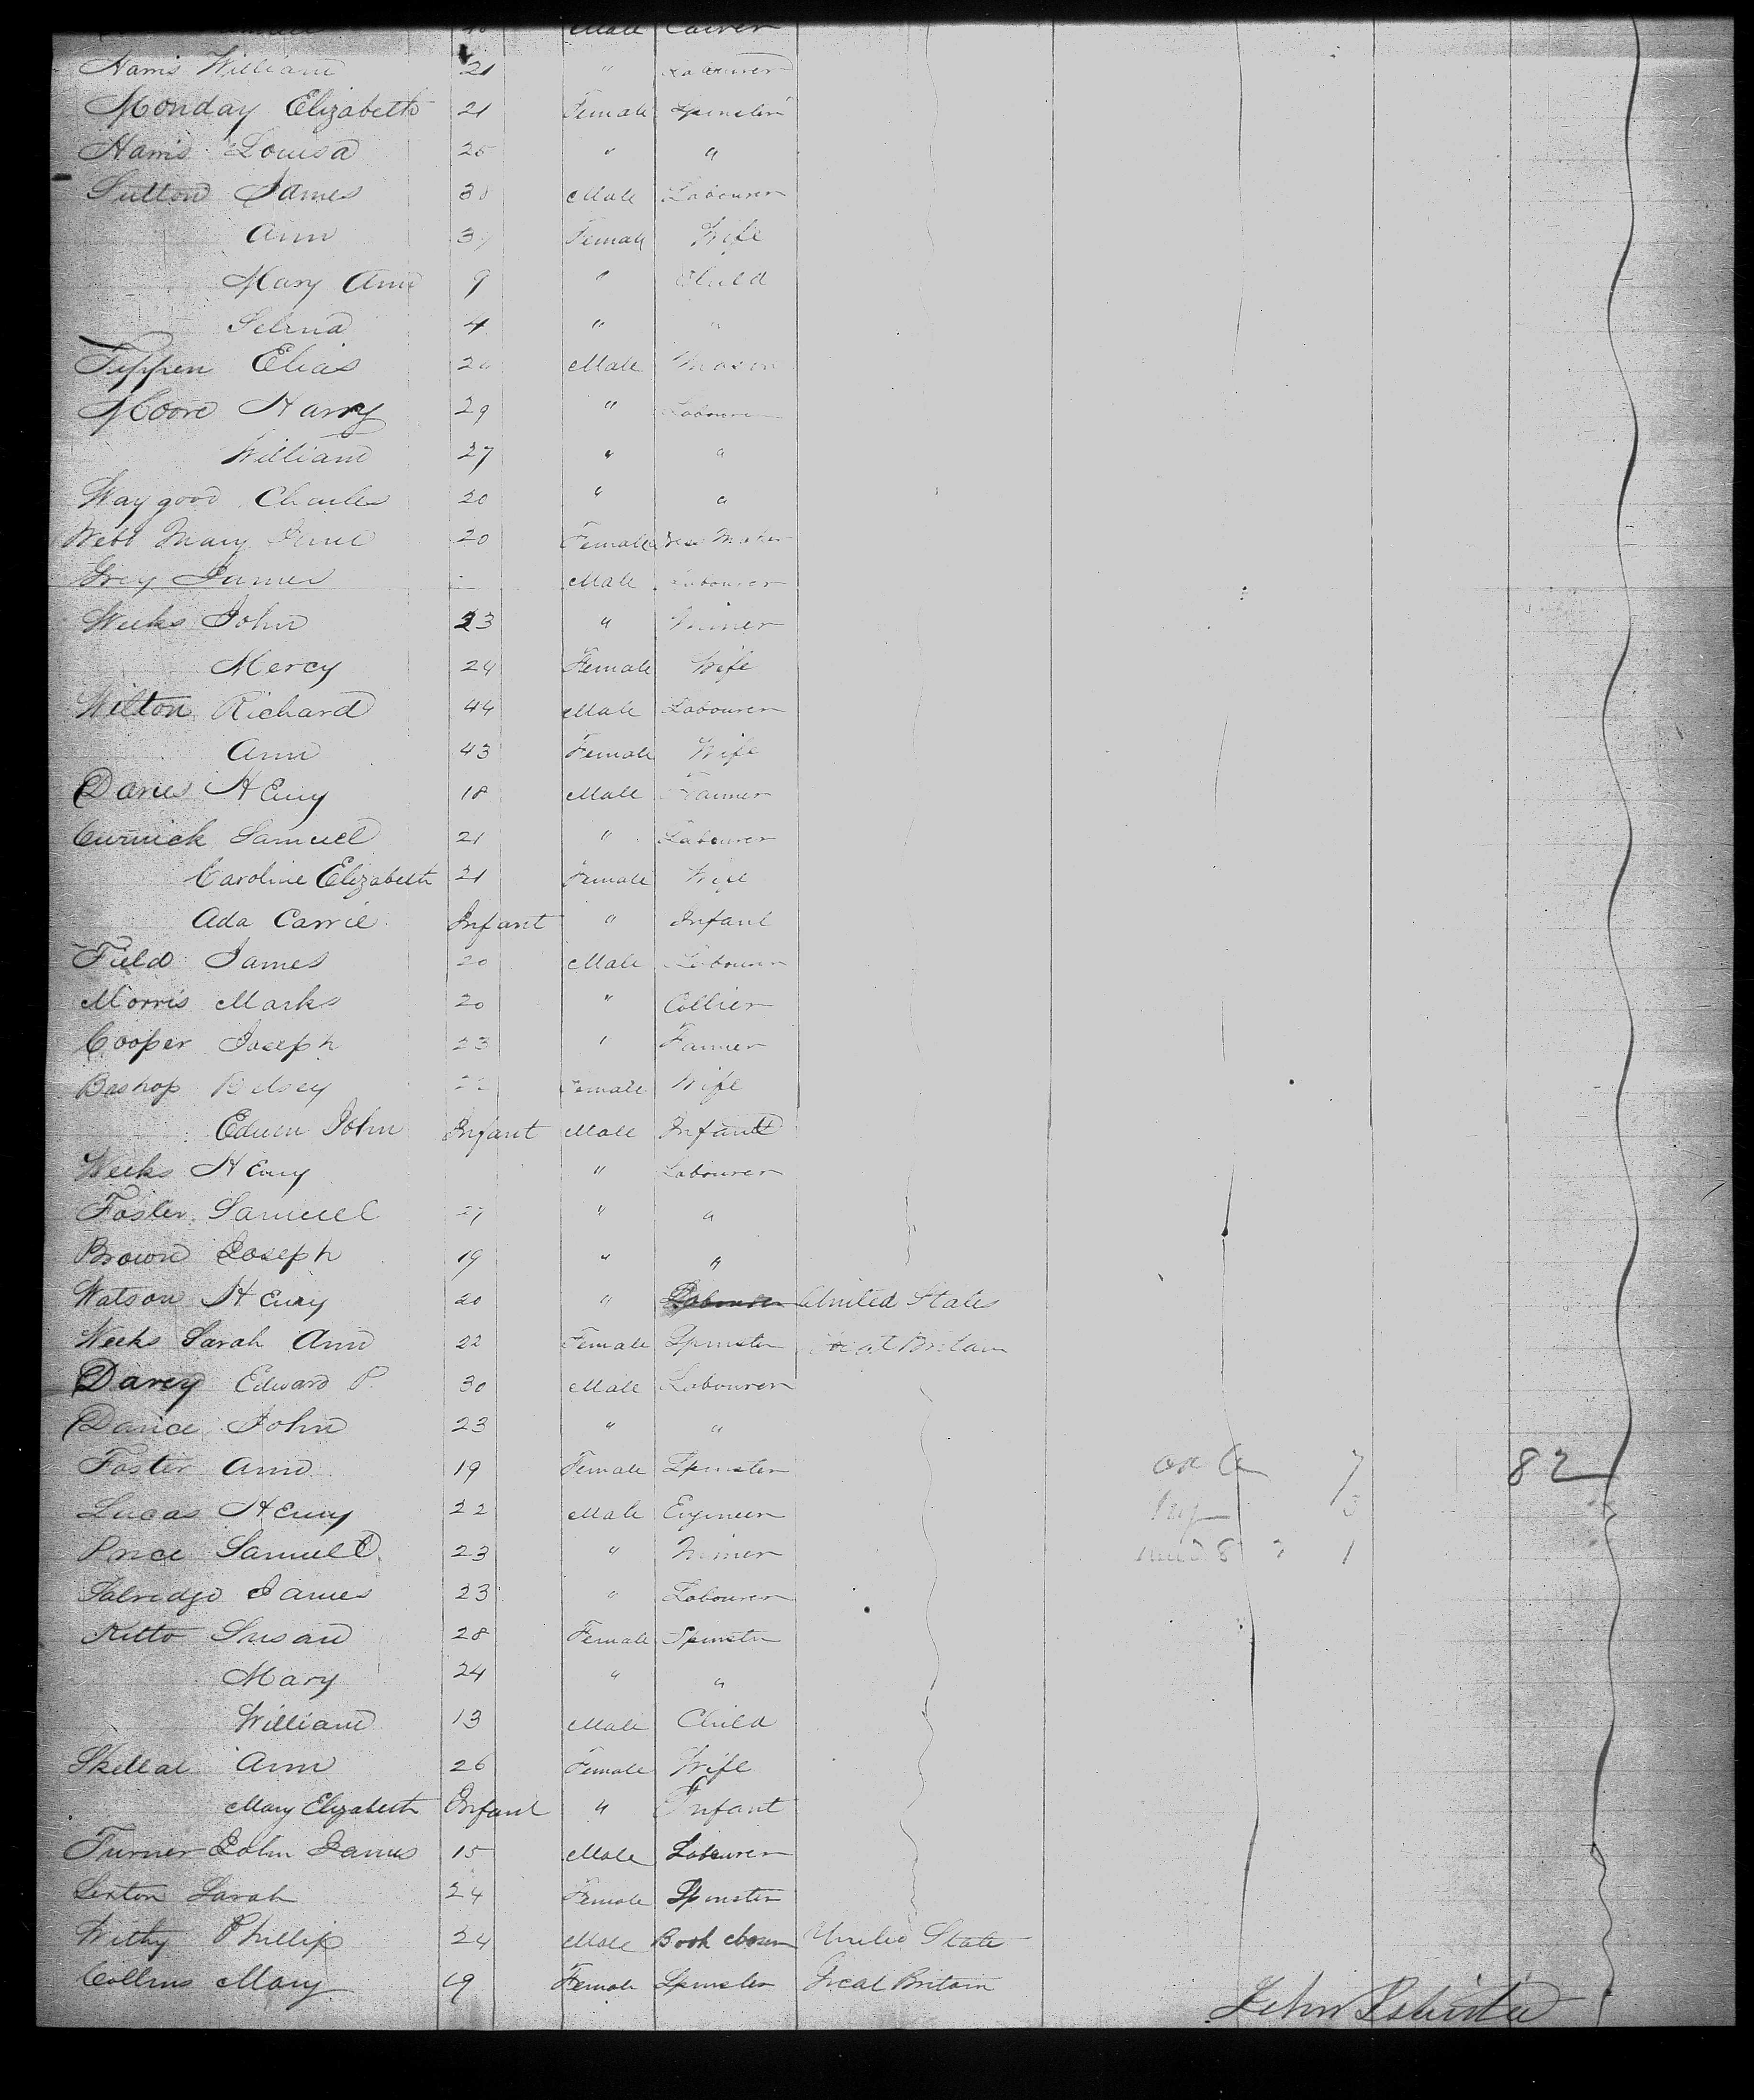 Male Carver
Harris William 21 " Labourer
Monday Elizabeth 21 Female Spinster
Harris Louisa 25 " "
Sutton James 38 Male Labourer
Ann 3 Female Wife
Mary Ann 9 " Child
Selina 4 " "
Tippen Elias 2 Male Mason
Moore Harry 29 " Labourer
William 27 " "
Waygood Charles 20 " "
Webb Mary Jane 20 Female Dress Maker
Grey James Male Labourer
Weeks John 23 " Miner
Mercy 24 Female Wife
Wilton Richard 44 Male Labourer
Ann 43 Female Wife
Davies Henry 18 Male Farmer
Curnick Samuel 21 " Labourer
Caroline Elizabeth 21 Female Wife
Ada Carrie Infant " Infant
Field James 20 Male Labourer
Morris Marks 20 " Collier
Cooper Joseph 23 " Farmer
Bishop Betsey 22 Female Wife
Edwin John Infant Male Infant
Weeks Henry " Labourer
Foster Samuel 27 " "
Brown Joseph 19 " "
Watson Henry 20 " Labourer United States
Weeks Sarah Ann 22 Female Spinster Great Britain
Davey Edward P. 30 Male Labourer
Dance John 23 " "
Foster Ann 19 Female Spinster 7 82
Lucas Henry 22 Male Engineer 3
Price Samuel 23 " Miner 8 1
Selridge James 23 " Labourer
Kitto Susan 28 Female Spinster
Mary 24 " "
William 13 Male Child
Skellal Ann 26 Female Wife
Mary Elizabeth Infant " Infant
Turner John James 15 Male Labourer
Sexton Sarah 24 Female Spinster
Withy Phillip 24 Male Book United State
Collins Mary 19 Female Spinster Great Britain
John